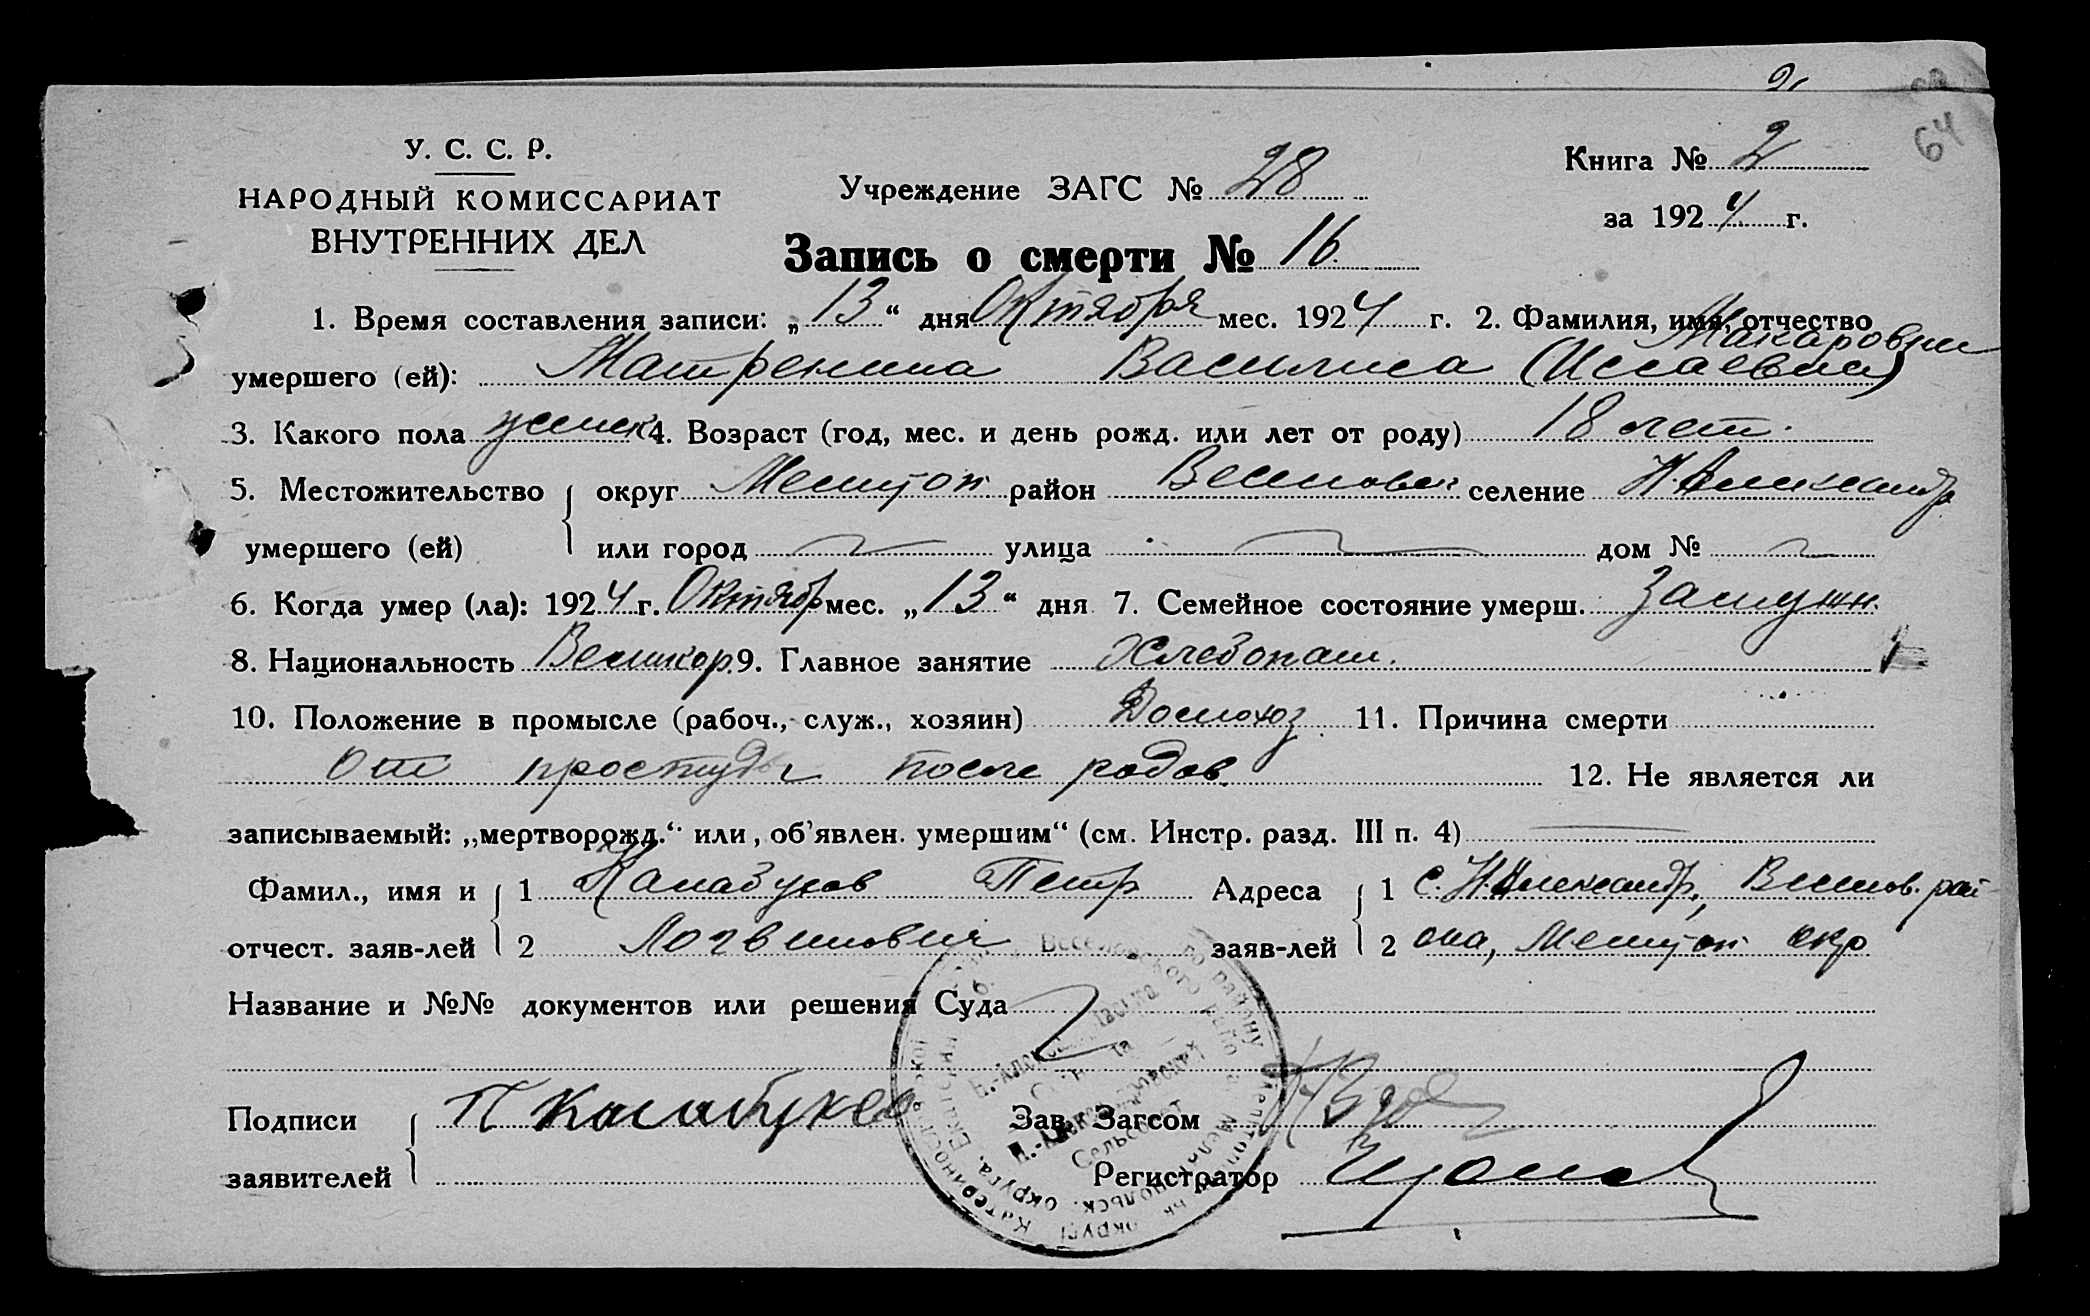 64
У. С. С. Р.
НАРОДНЫЙ КОМИССАРИАТ
ВНУТРЕННИХ ДЕЛ
Учреждение ЗАГС № 28
Книга № 2
за 1924 г.
Запись о смерти № 16
1. Время составления записи: „13“ дня Октября мес. 1924 г. 2. Фамилия, имя, отчество
Макаровна
умершего (ей): Матренина Василиса (Исаевна)
3. Какого пола женск 4. Возраст (год, мес. и день рожд. или лет от роду) 18 лет.
5. Местожительство округ Мелитоп район Веселовск селение Н.Александр
умершего (ей) или город улица дом №
6. Когда умер (ла): 1924 г. Октябр мес. „13“ дня 7. Семейное состояние умерш. Замужн.
8. Национальность Великор. 9. Главное занятие Хлебопаш.
10. Положение в промысле (рабоч., служ., хозяин) Домохоз 11. Причина смерти
От простуды после родов 12. Не является ли
записываемый: „мертворожд.“ или, об'явлен. умершим“ (см. Инстр. разд. III п. 4)
Фамил., имя и 1 Калабухов Петр Адреса 1 с. Н.Александр, Веселов. рай-
отчест. заяв-лей 2 Логвинович заяв-лей 2 она, Мелитоп окр
Название и №№ документов или решения Суда
Подписи П Калабухов Зав. Загсом
заявителей Регистратор
Сельсовет